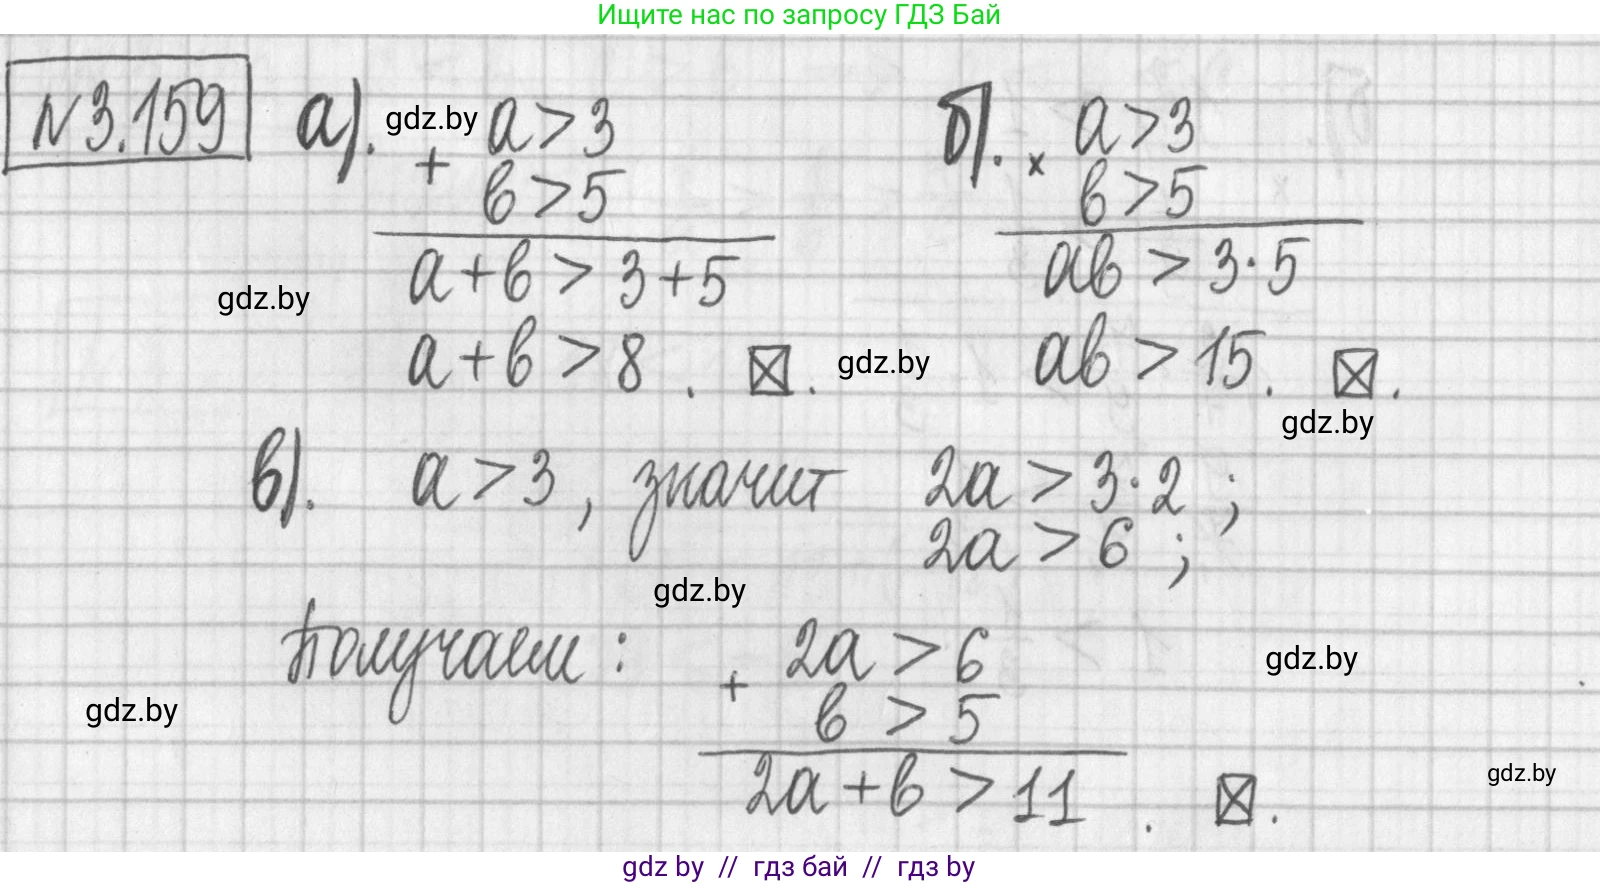 Ищите нас по запросу ГДЗ Бай
№3.159 а). gdz.by a > 3 б). × a > 3
+ в > 5 в > 5
a + в > 3 + 5 aв > 3·5
gdz.by
a + в > 8 . ⊠. gdz.by aв > 15. ⊠.
gdz.by
в). a > 3 , значит 2a > 3·2 ;
2a > 6 ;
gdz.by
Получаем : + 2a > 6 gdz.by
gdz.by в > 5
2a + в > 11 . ⊠. gdz.by
gdz by // гдз бай // гдз by